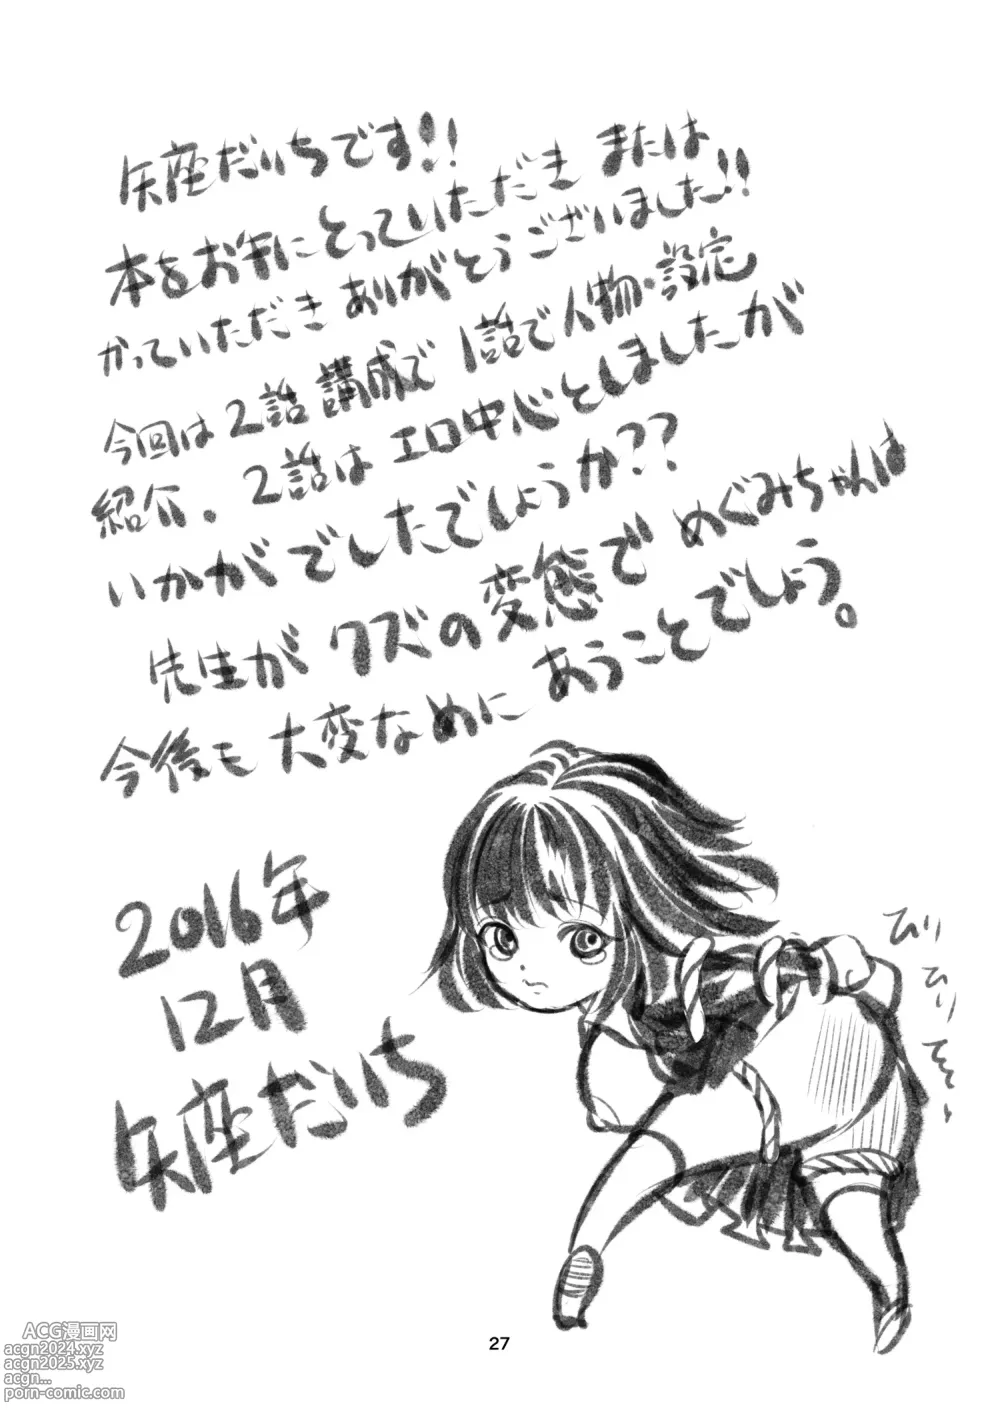 矢座だいちです!!
本をお手にとっていただき または
かっていただき ありがとうございました!!
今回は2話講成で 1話で人物・設定
紹介。2話はエロ中心としましたが
いかがでしたでしょうか??
先生がクズの変態で めぐみちゃんは
今後も 大変なめに あうことでしょう。
2016年
12月
矢座だいち
27
ACG漫画网
acgn2024.xyz
acgn2025.xyz
acgn...
porn-comic.com